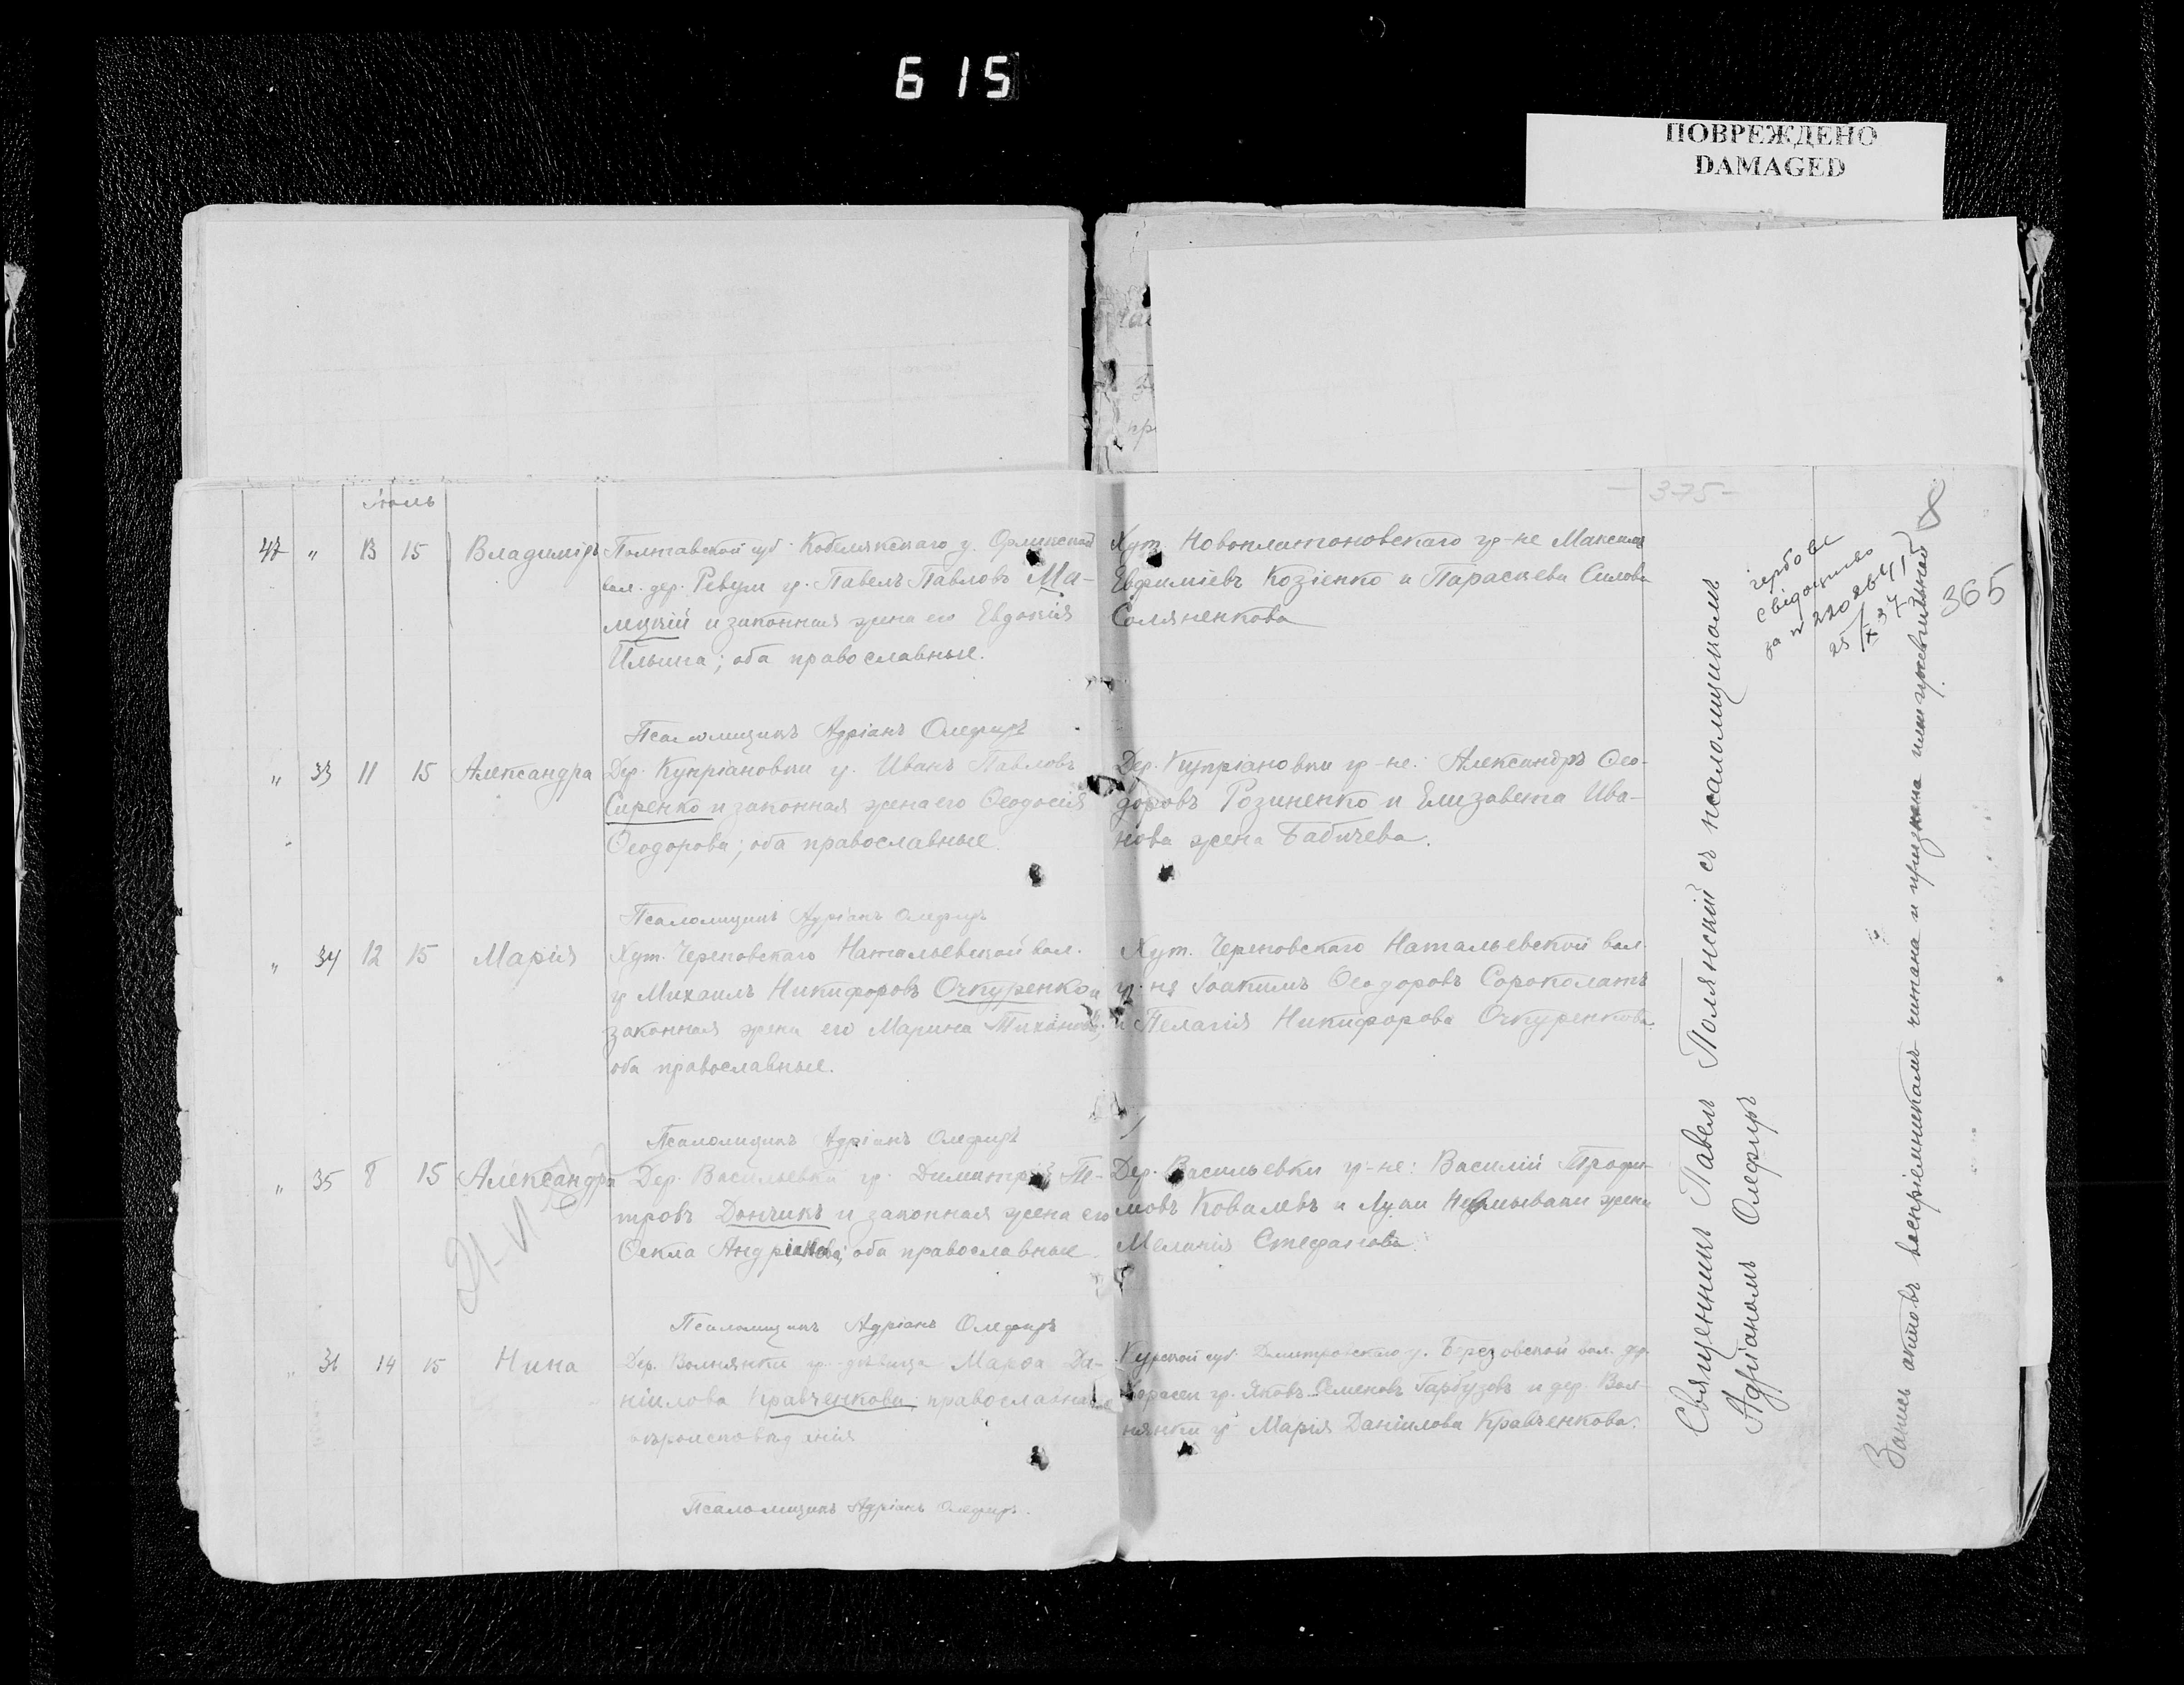 6 15
ПОВРЕЖДЕНО
DAMAGED
- 375 -
365
Іюль
47 " 13 15 Владиміръ
Полтавской губ. Кобелякскаго у. Орлинской
вол. дер. Ревуш гр. Павелъ Павловъ Ма-
лецкій и законная жена его Евдокія
Ильина; оба православные.
Псаломщикъ Адріанъ Олефиръ
Хут. Новоплатоновскаго гр-не Максимъ
Евфиміевъ Козіенко и Параскева Силова
Соляненкова
" 33 11 15 Александра
Дер. Купріановки гр. Иванъ Павловъ
Сиренко и законная жена его Ѳеодосія
Ѳеодорова; оба православные.
Псаломщикъ Адріанъ Олефиръ
Дер. Купріановки гр-не: Александръ Ѳео-
доровъ Розиненко и Елизавета Ива-
нова жена Бабичева.
" 34 12 15 Марія
Хут. Череповскаго Натальевской вол.
гр Михаилъ Никифоровъ Очкуренко и
законная жена его Марина Тихонова;
оба православные.
Псаломщикъ Адріанъ Олефиръ
Хут. Череповскаго Натальевской вол.
гр-не Іоакимъ Ѳеодоровъ Сороколатъ
и Пелагія Никифорова Очкуренкова.
" 35 8 15 Александра
Дер. Васильевки гр. Димитрій Пе-
тровъ Дончикъ и законная жена его
Ѳекла Андріанова; оба православные.
Псаломщикъ Адріанъ Олефиръ
Дер. Васильевки гр-не: Василій Трофи-
мовъ Ковалевъ и Луки жена
Меланія Стефанова.
" 36 14 15 Нина
Дер. Волнянки гр. дѣвица Марфа Да-
ніилова Кравченкова, православнаго
вѣроисповѣданія
Псаломщикъ Адріанъ Олефиръ.
Курской губ. Дмитровскаго у. Березовской вол. дер.
гр. Яковъ Семеновъ Гарбузовъ и дер. Вол-
нянки гр Марія Даніилова Кравченкова.
Священникъ Павелъ Полянскій съ псаломщикомъ
Адріаномъ Олефиръ
гербове
свідоцтво
за № 220264
25/IX 37
Запись актовъ воспріемникамъ читана и признана ими правильной